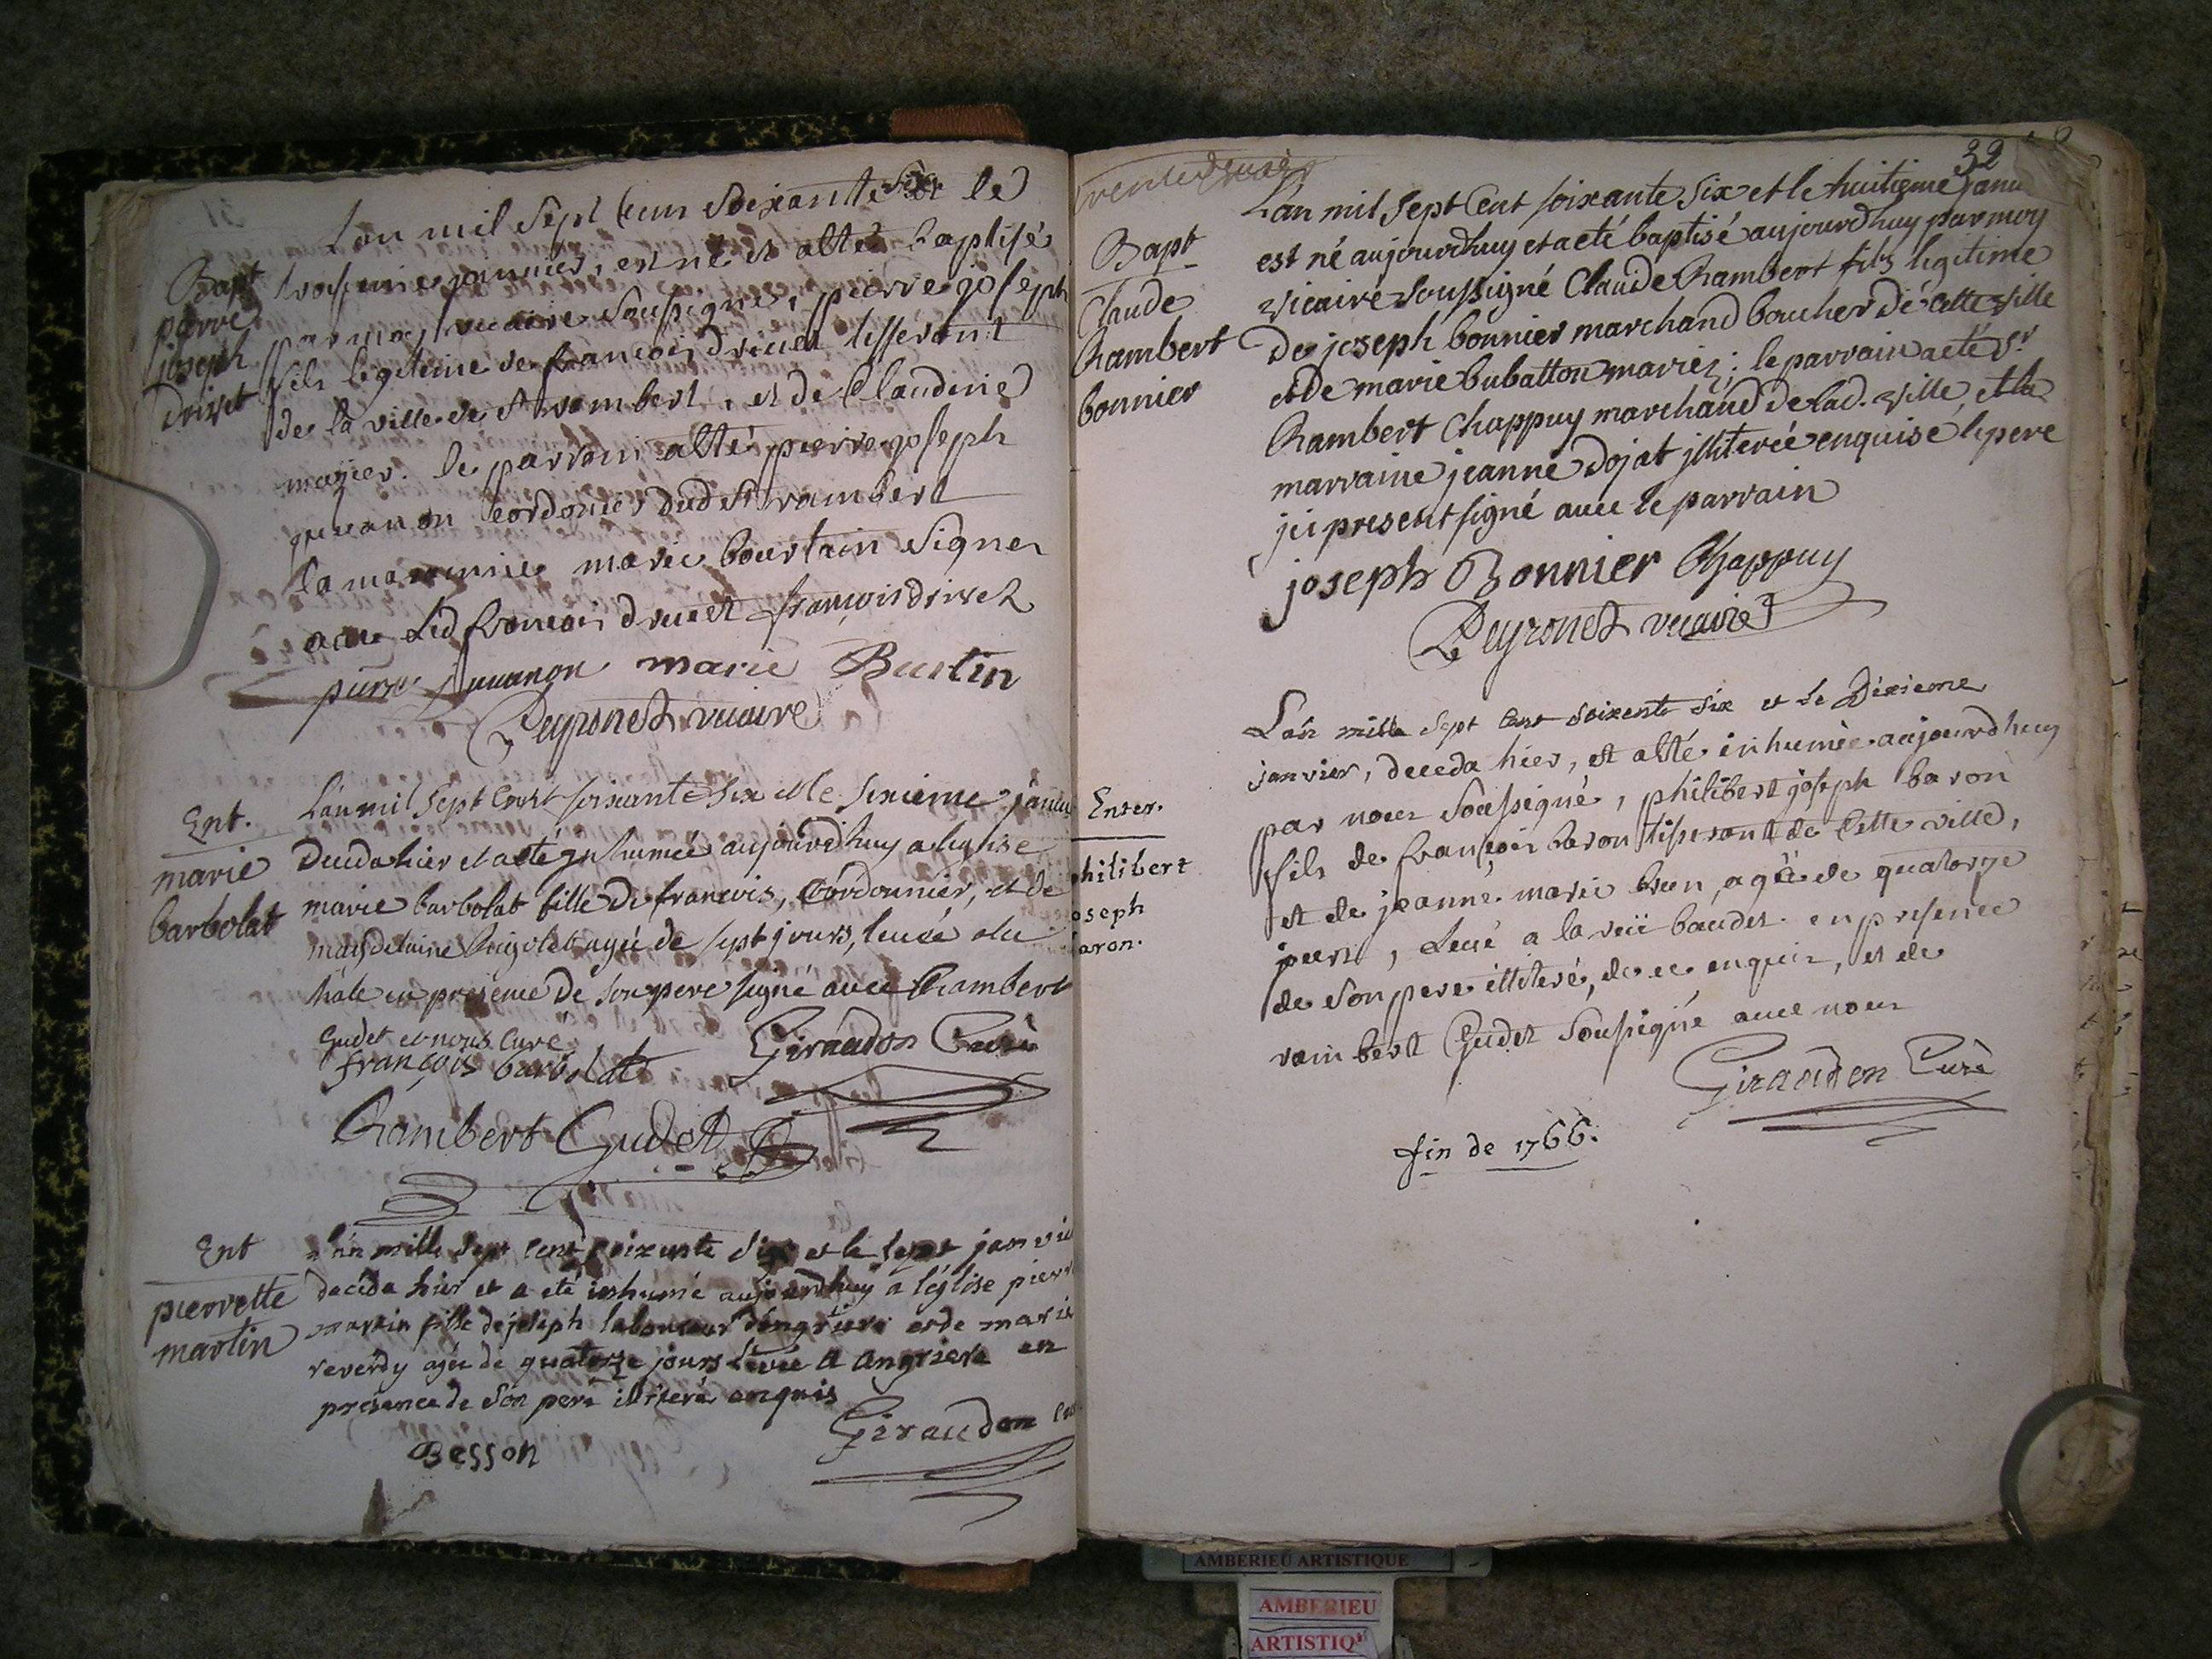 Bapt
pierre
joseph
drivet
L'an mil sept cent soixante six et le
troisieme janvier, est né et atté baptisé
par moy vicaire soussigné, pierre joseph
fils legitime de francois drivet tisserant
de la ville de st rambert, et de Claudine
le parrain atté pierre joseph
cordonier dud st rambert
la marainne marie bourtain signer
avec led francois drivet françois drivet
marie Burtin
Peyronet vicaire
Ent.
marie
barbolat
L'an mil sept cent soixante six et le sixieme janvi
deceda hier et a eté inhumée aujourd'huy a l'eglise
marie barbolat fille de francois, cordonnier, et de
magdelaine agée de sept jours, levée a la
hale en presence de son pere signé avec Rambert
Gudet et nous curé
françois barbolat Giraudon Curé
Rambert Gudet
Ent
pierrette
martin
L'an mille sept cent soixante six et le sept janvie
deceda hier et a eté inhumé aujourdhuy a l'église pierr
martin fille de joseph laboureur d'angriere et de marie
reverdy agée de quatorze jours levée a angriere en
presence de son pere illiteré enquis
Besson Giraudon
32
trente deuxie
Bapt
Claude
Rambert
bonnier
L'an mil sept Cent soixante six et le huitieme janvi
est né aujourdhuy et a eté baptisé aujourdhuy par moy
vicaire soussigné Claude Rambert fils legitime
de joseph bonnier marchand boucher de cette ville
et de marie bubatton mariez; le parrain a eté Sr
Rambert Chappuy marchand de lad. ville, et la
marraine jeanne dojat jlliterée enquise le pere
ici present signé avec le parrain
joseph Bonnier Chappuy
Peyronet vicaire
Enter.
philibert
joseph
baron.
L'an mille sept cent soixente six et le Dixieme
janvier, deceda hier, et atté inhumée aujourdhuy
par nous soussigné, philibert joseph baron
fils de françois baron tisserant de cette ville,
et de jeanne marie brun, agée de quatorze
jours, levé a la ruë baudet en presence
de son pere illiteré, de ce enquis, et de
rambert Gudet soussigné avec nous
Giraudon Curé
fin de 1766.
AMBERIEU ARTISTIQUE
AMBERIEU
ARTISTIQ